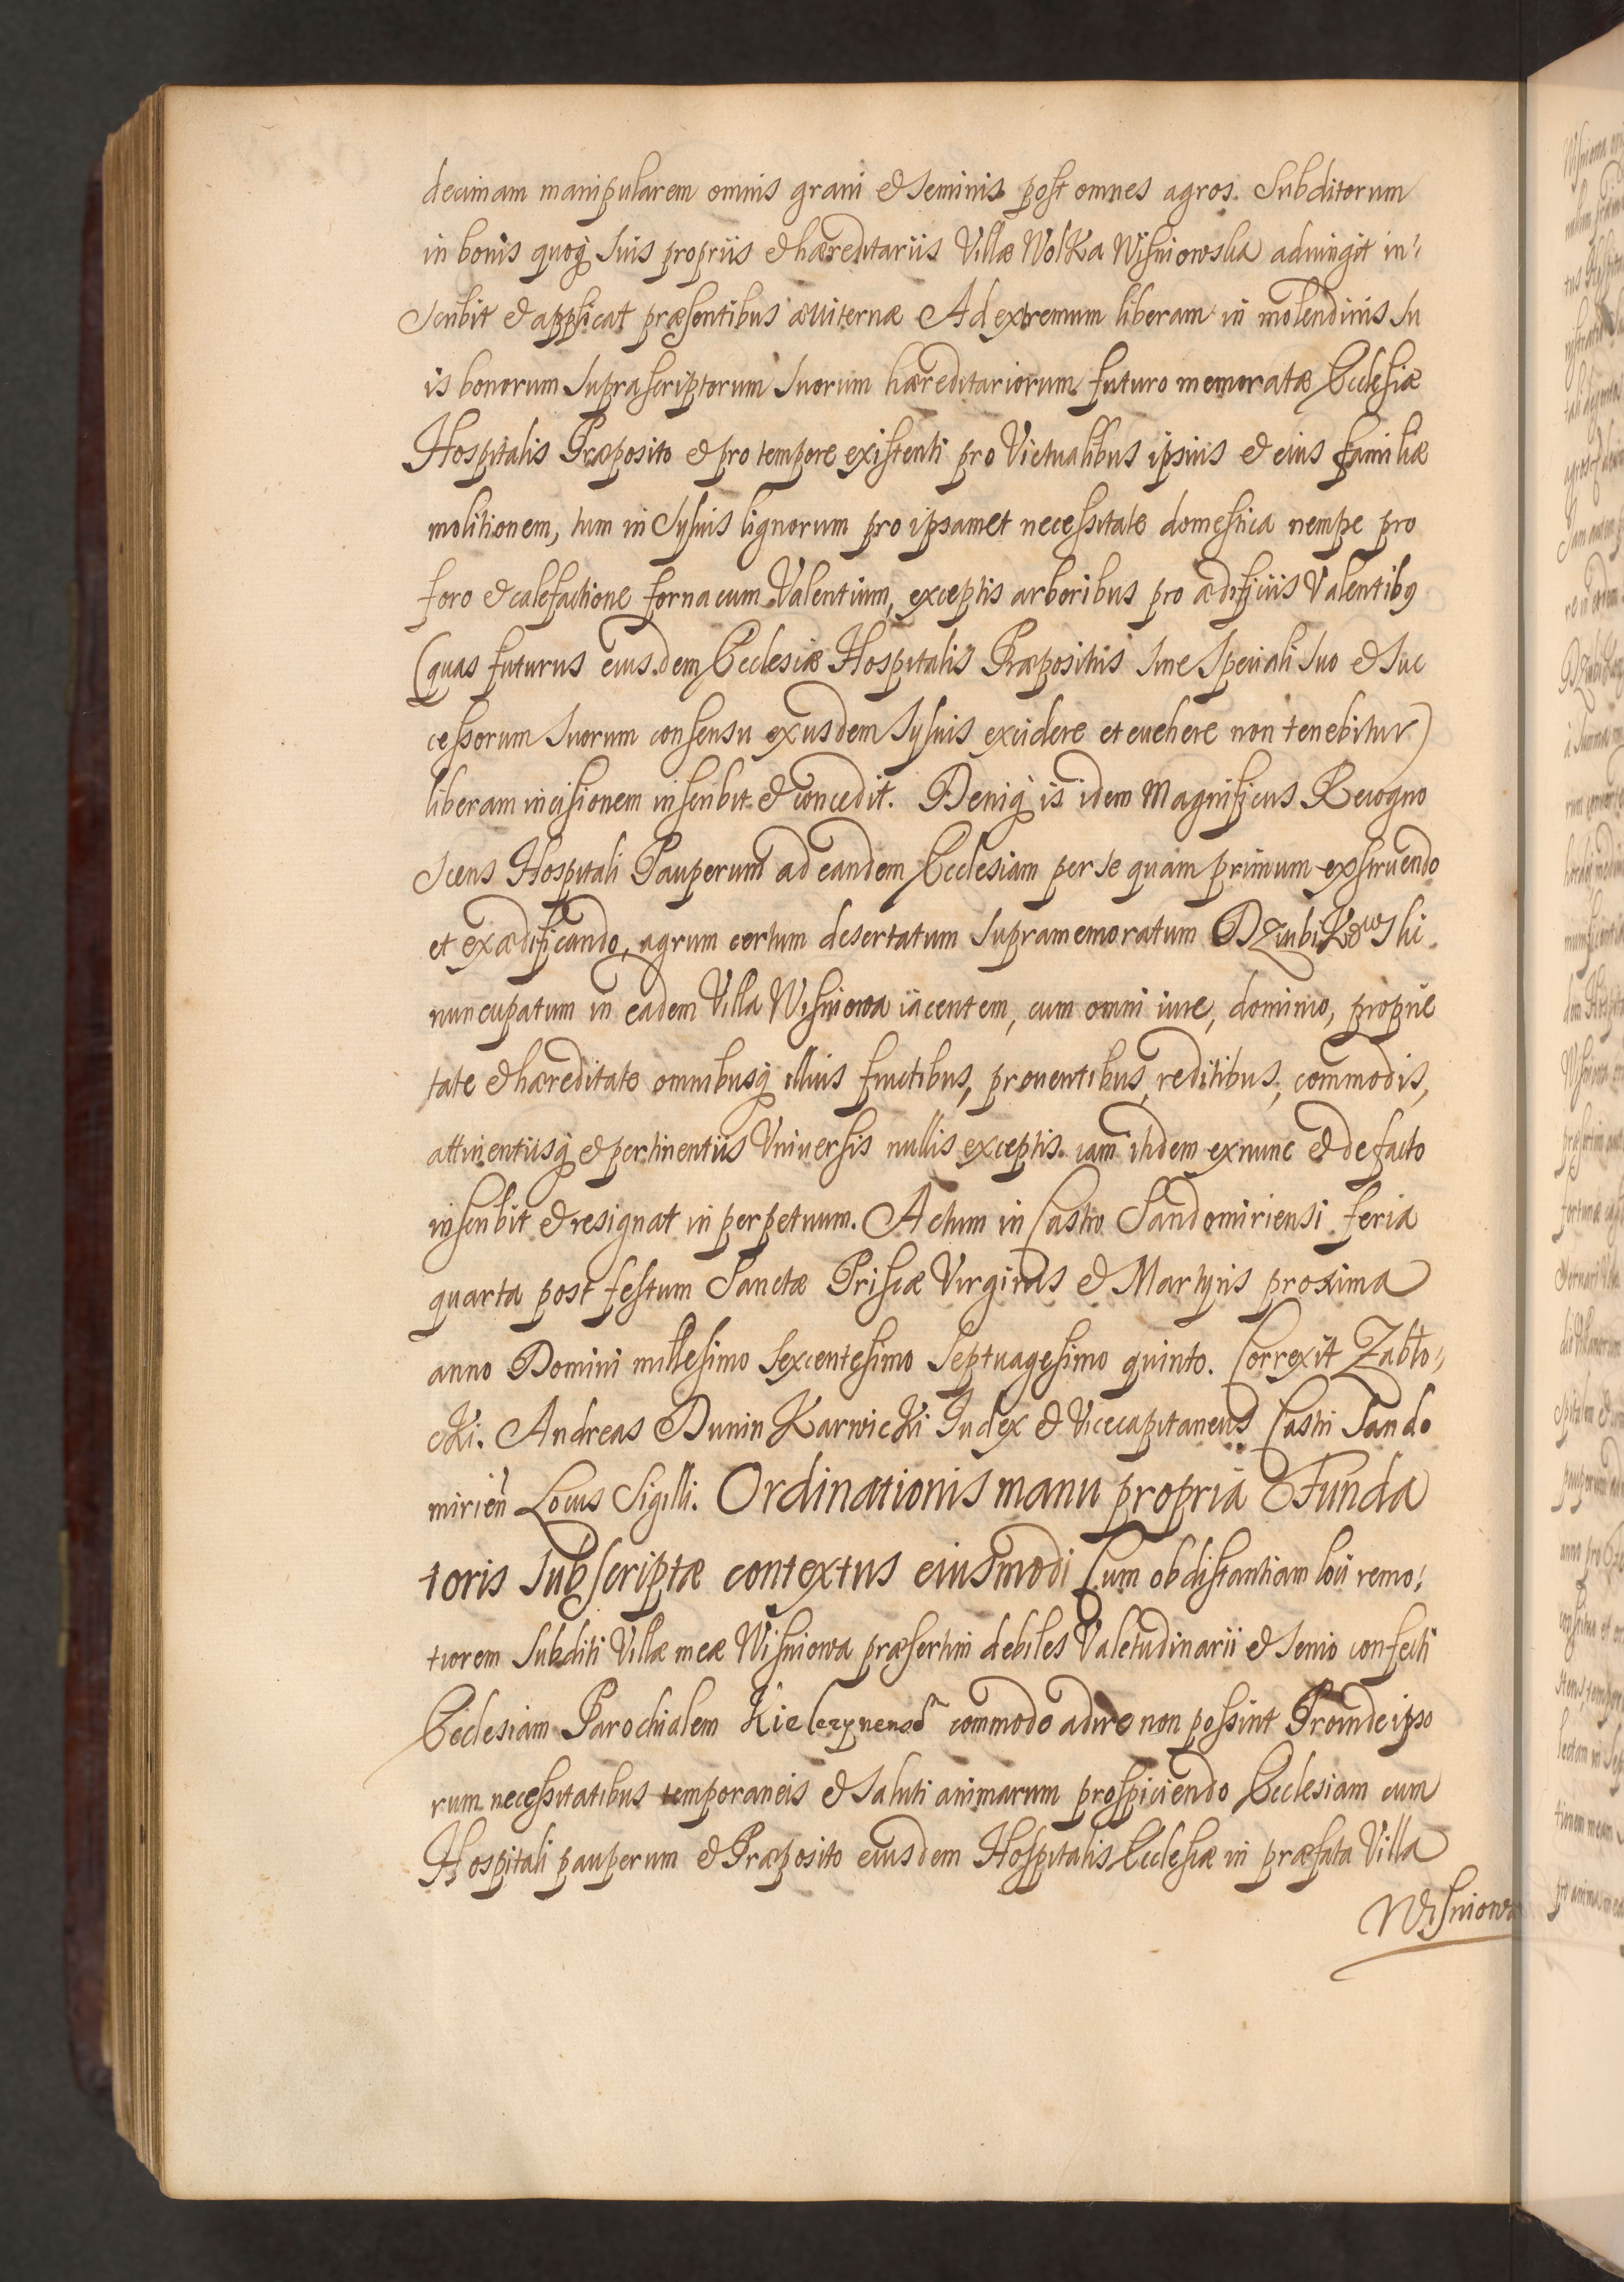 decimam manipularem omnis grani et seminis post omnes agros. Subditorum
in bonis quoq suis propriis et hæreditariis Villæ Wolka Wisniowska adiungit in:
scribit et applicat præsentibus æuiternæ Ad extremum liberam in molendinis su
is bonorum suprascriptorum suorum hæreditariorum futuro memoratæ Ecclesiæ
Hospitalis Præposito et pro tempore existenti pro Victualibus ipsius et eius familiæ
molitionem, tum in Syluis lignorum pro ipsamet necessitate domestica nempe pro
foro et calefactione fornacum Valentium, exceptis arboribus pro ædificiis Valentibq
(quas futurus eiusdem Ecclesiæ Hospitalis Præpositus sine speciali suo et suc
cessorum suorum consensu ex iisdem syluis excidere et euehere non tenebitur)
liberam incisionem inscribit et concedit. Deniq is idem Magnificus Recogno
scens Hospitali Pauperum ad eandem Ecclesiam per se quam primum exstruendo
et exædificando, agrum certum desertatum supramemoratum Dziubikowski
nuncupatum in eadem Villa Wisniowa iacentem, cum omni iure, dominio, proprie
tate et hæreditate omnibusq illius fructibus, prouentibus, reditibus, commodis,
attinentiisq et pertinentiis Vniuersis nullis exceptis iam itidem ex nunc et de facto
inscribit et resignat in perpetuum. Actum in Castro Sandomiriensi feria
quarta post festum Sanctæ Priscæ Virginis et Martyris proxima
anno Domini millesimo sexcentesimo septuagesimo quinto. Correxit Zabło:
cki. Andreas Dunin Karwicki Iudex et Vicecapitaneus Castri Sando
mirien Locus Sigilli. Ordinationis manu propria Funda
toris subscriptæ contextus eiusmodi Cum ob distantiam loci remo:
tiorem subditi Villæ meæ Wisniowa præsertim debiles Valetudinarii et senio confecti
Ecclesiam Parochialem Kielczynensem commode adire non possint Proinde ipso
rum necessitatibus temporaneis et saluti animarum prospiciendo Ecclesiam cum
Hospitali pauperum et Præposito eiusdem Hospitalis Ecclesiæ in præfata Villa
Wisniowa